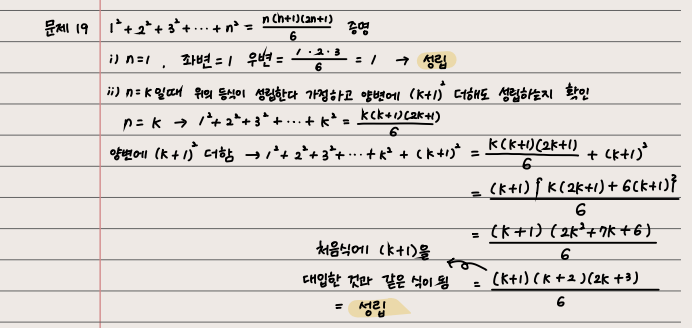 문제 19 1² + 2² + 3² + ⋯ + n² = n(n+1)(2n+1)/6 증명
i) n=1, 좌변 = 1 우변 = 1·2·3/6 = 1 → 성립
ii) n=k 일때 위의 등식이 성립한다 가정하고 양변에 (k+1)² 더해도 성립하는지 확인
n = k → 1² + 2² + 3² + ⋯ + k² = k(k+1)(2k+1)/6
양변에 (k+1)² 더함 → 1² + 2² + 3² + ⋯ + k² + (k+1)² = k(k+1)(2k+1)/6 + (k+1)²
= (k+1){k(2k+1)+6(k+1)}/6
= (k+1)(2k²+7k+6)/6
처음식에 (k+1)을
대입한 것과 같은 식이 됨 = (k+1)(k+2)(2k+3)/6
= 성립